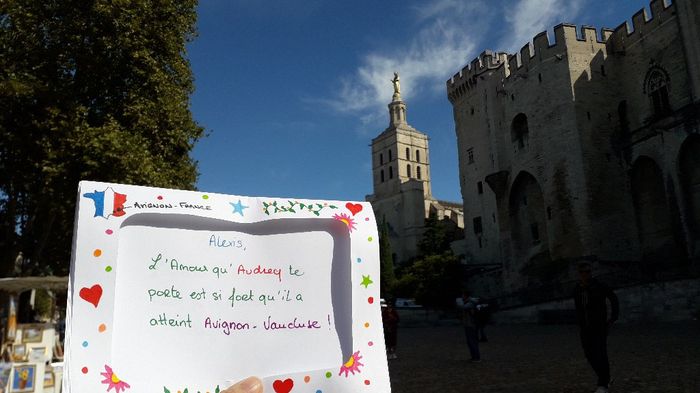 AVIGNON-FRANCE
Alexis,
L'Amour qu'Audrey te
porte est si fort qu'il a
atteint Avignon-Vaucluse !